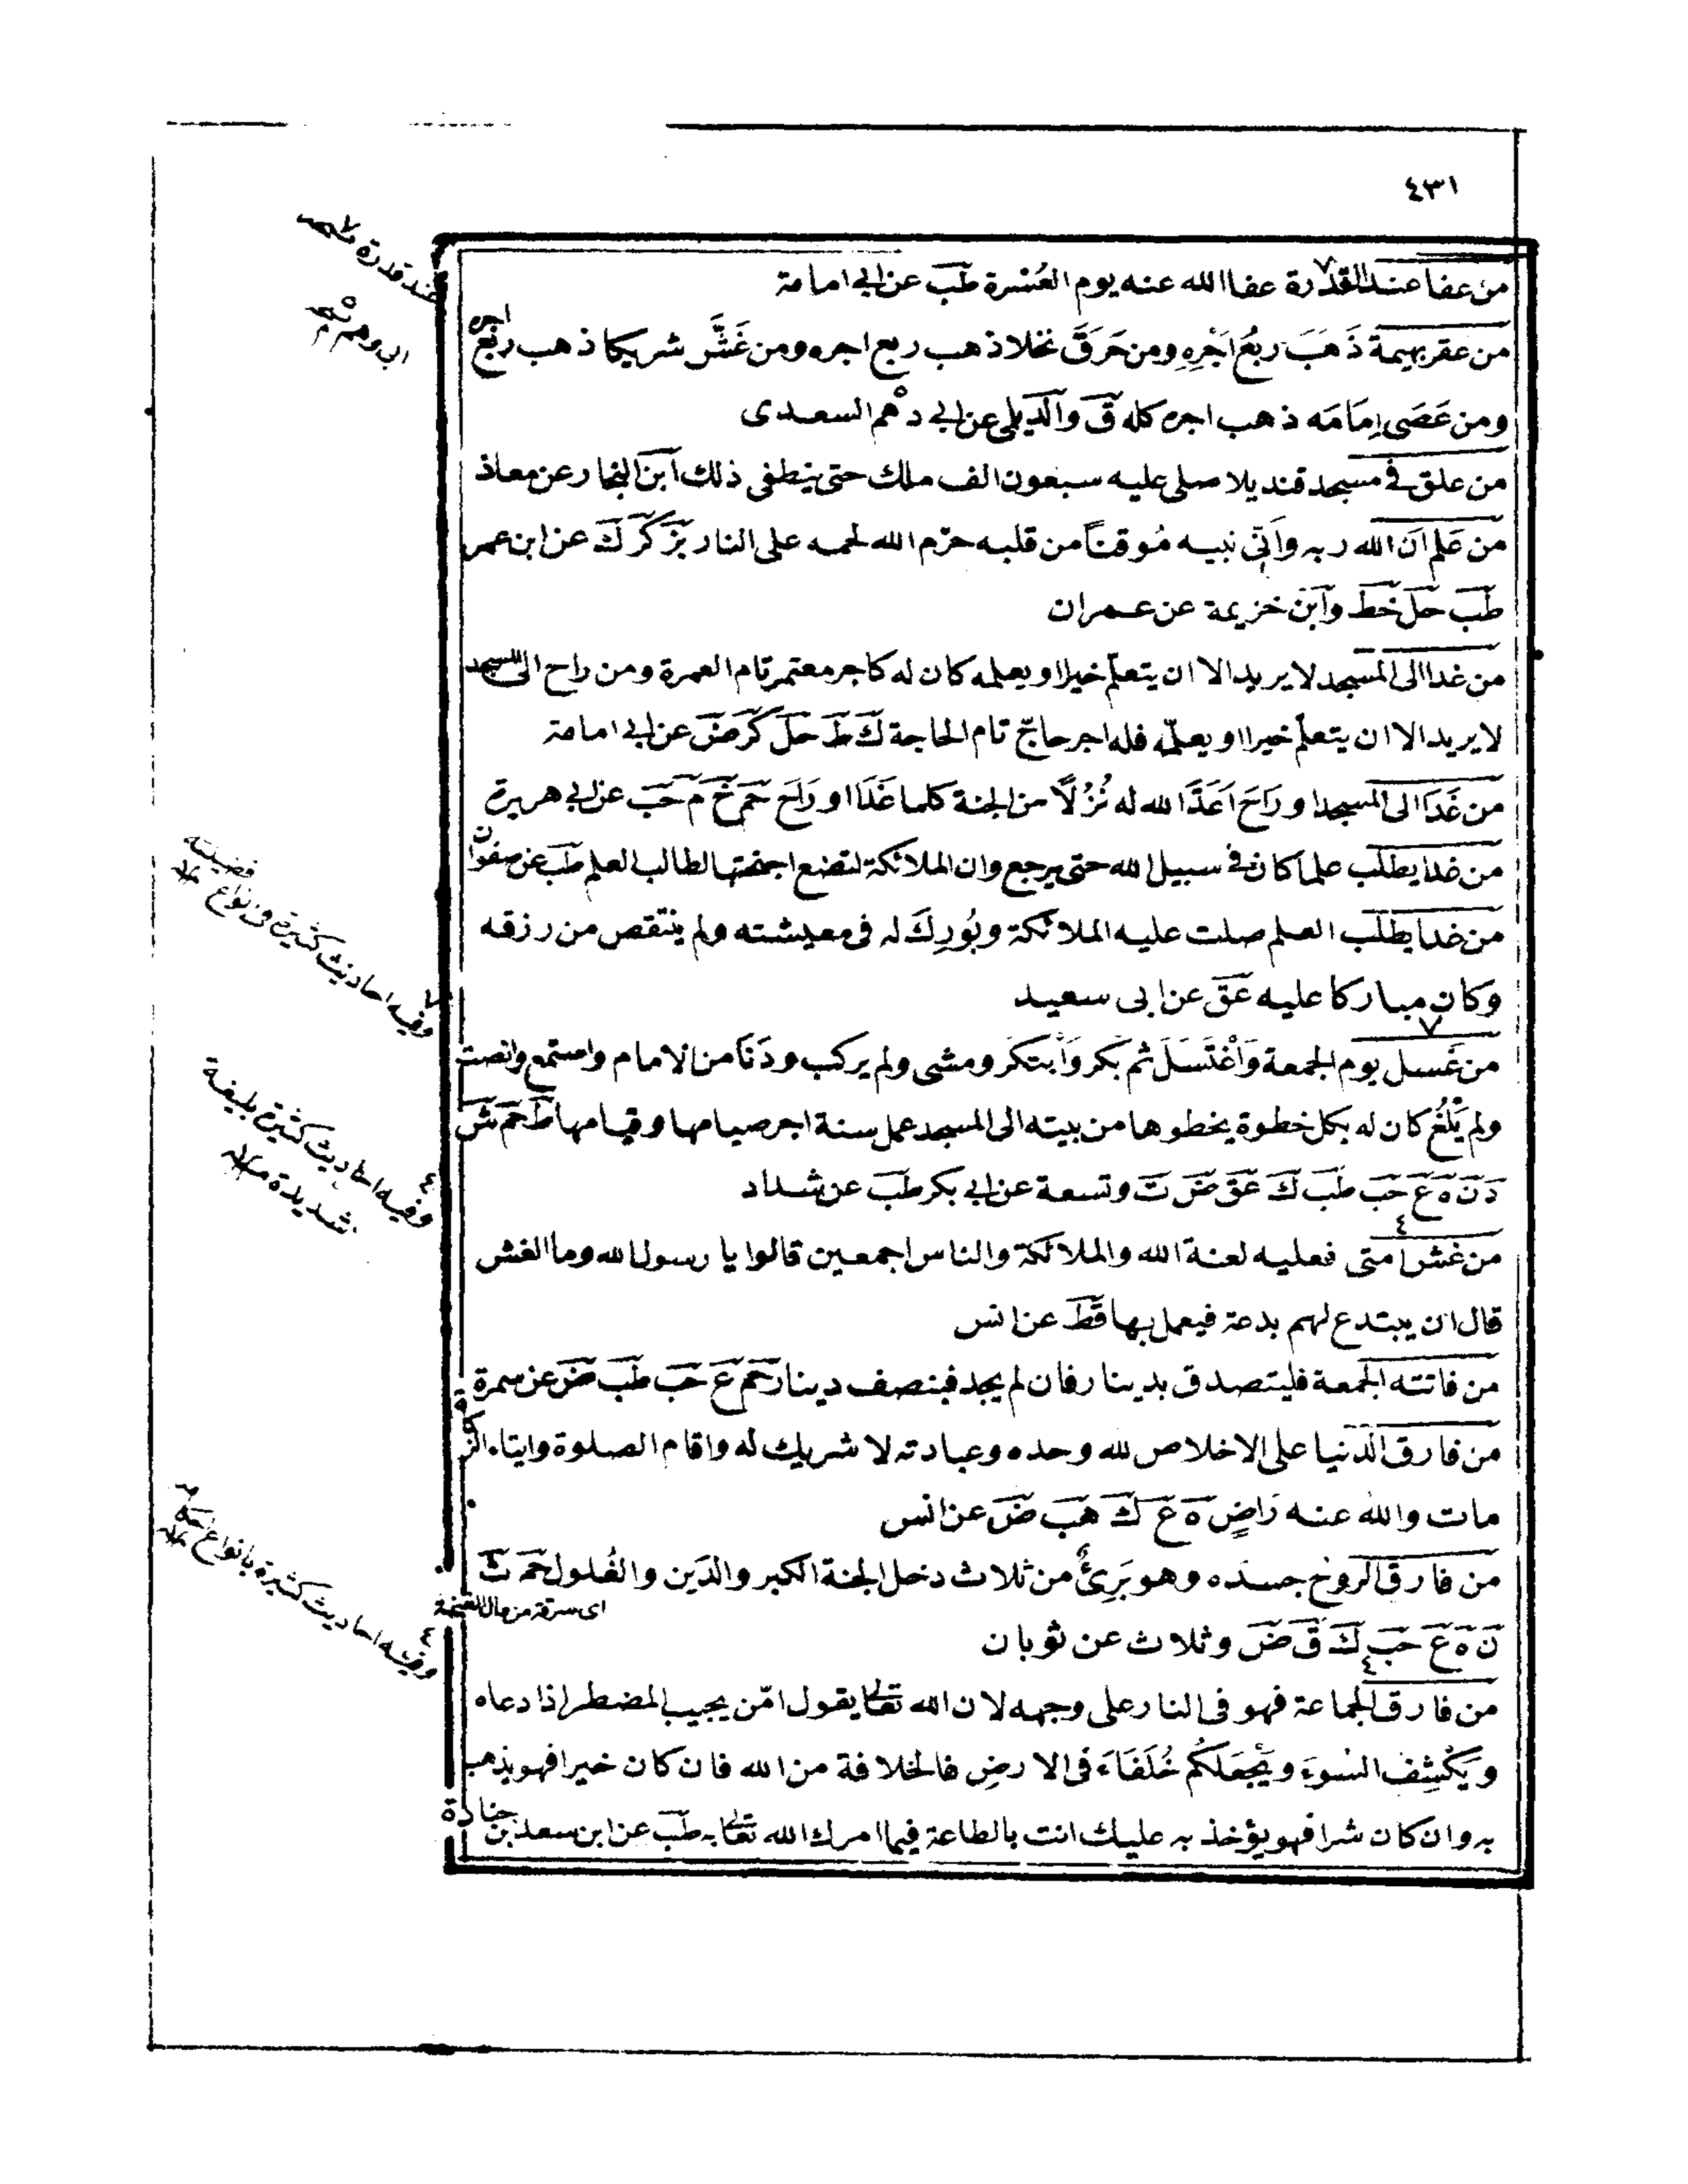 ٤٣١
من عفا عند القدرة عفا الله عنه يوم العُسْرة طب عن ابى امامة
من عقر بهيمة ذَهَبَ رَبُعُ اَجْرِهِ ومن حَرَقَ نخلا ذهب ربع اجره ومن غَشَّ شريكا ذهب ربع اجره
ومن عَصَى اِمَامَه ذهب اجره كله ق والديلمى عن ابى دهم السعدى
من علق فى مسجد قنديلا صلى عليه سبعون الف ملك حتى ينطفى ذلك ابن النجار عن معاذ
من عَلِم اَن الله ربه واَنّى نبيه مُوقنًا من قلبه حرّم الله لحمه على النار بز كر ك عن ابن عمر
طب حل خط وابن خزيمة عن عمران
من غدا الى المسجد لا يريد الا ان يتعلّم خيرا او يعلمه كان له كاجر معتمر تام العمرة ومن راح الى المسجد
لا يريد الا ان يتعلّم خيرا او يعلّمه فله اجر حاجّ تام الحاجة ك ط حل كر ض عن ابى امامة
من غَدَا الى المسجد او رَاحَ اَعَدَّ الله له نُزُلًا من الجنة كلما غَدَا او رَاحَ حم خ م حب عن ابى هريرة
من غدا يطلب علما كان فى سبيل الله حتى يرجع وان الملائكة لتضع اجنحتها لطالب العلم طب عن صفوان
من غدا يطلب العلم صلت عليه الملائكة وبُورِكَ له فى معيشته ولم ينتقص من رزقه
وكان مباركا عليه عق عن ابى سعيد
من غَسل يوم الجمعة وَاغْتَسَلَ ثم بَكر وَابتكر ومشى ولم يركب ودَنَا من الامام واستمع وانصت
ولم يَلْغُ كان له بكل خطوة يخطوها من بيته الى المسجد عمل سنة اجر صيامها وقيامها ط حم ش
د ن ه ع حب طب ك عق ض ت وتسعة عن ابى بكر طب عن شداد
من غش امتى فعليه لعنة الله والملائكة والناس اجمعين قالوا يا رسول الله وما الغش
قال ان يبتدع لهم بدعة فيعمل بها قط عن انس
من فاتته الجمعة فليتصدق بدينار فان لم يجد فبنصف دينار حم ع حب طب ض عن سمرة
من فارق الدنيا على الاخلاص لله وحده وعبادته لا شريك له واقام الصلوة وايتاء الزكاة
مات والله عنه رَاضٍ ه ع ك هب ض عن انس
من فارق الروح جسده وهو بَرِئٌ من ثلاث دخل الجنة الكبر والدَين والغُلول حم ت
اى سرقة من مال الغنيمة
ن ه ع حب ك ق ض وثلاث عن ثوبان
من فارق الجماعة فهو فى النار على وجهه لان الله تعالى يقول امّن يجيب المضطر اذا دعاه
ويَكْشِف السُوءَ ويَجْعَلكُم خُلَفَاءَ فى الارضِ فالخلافة من الله فان كان خيرا فهو يذهب
به وان كان شرا فهو يؤخذ به عليك انت بالطاعة فيما امرك الله تعالى به طب عن ابن سعد بن جنادة
عند قدرة
ابو وهم
وفيه احاديث كثيرة وانواع فضيلته
وفيه احاديث كثيرة بليغة
شديدة
وفيه احاديث كثيرة بانواع